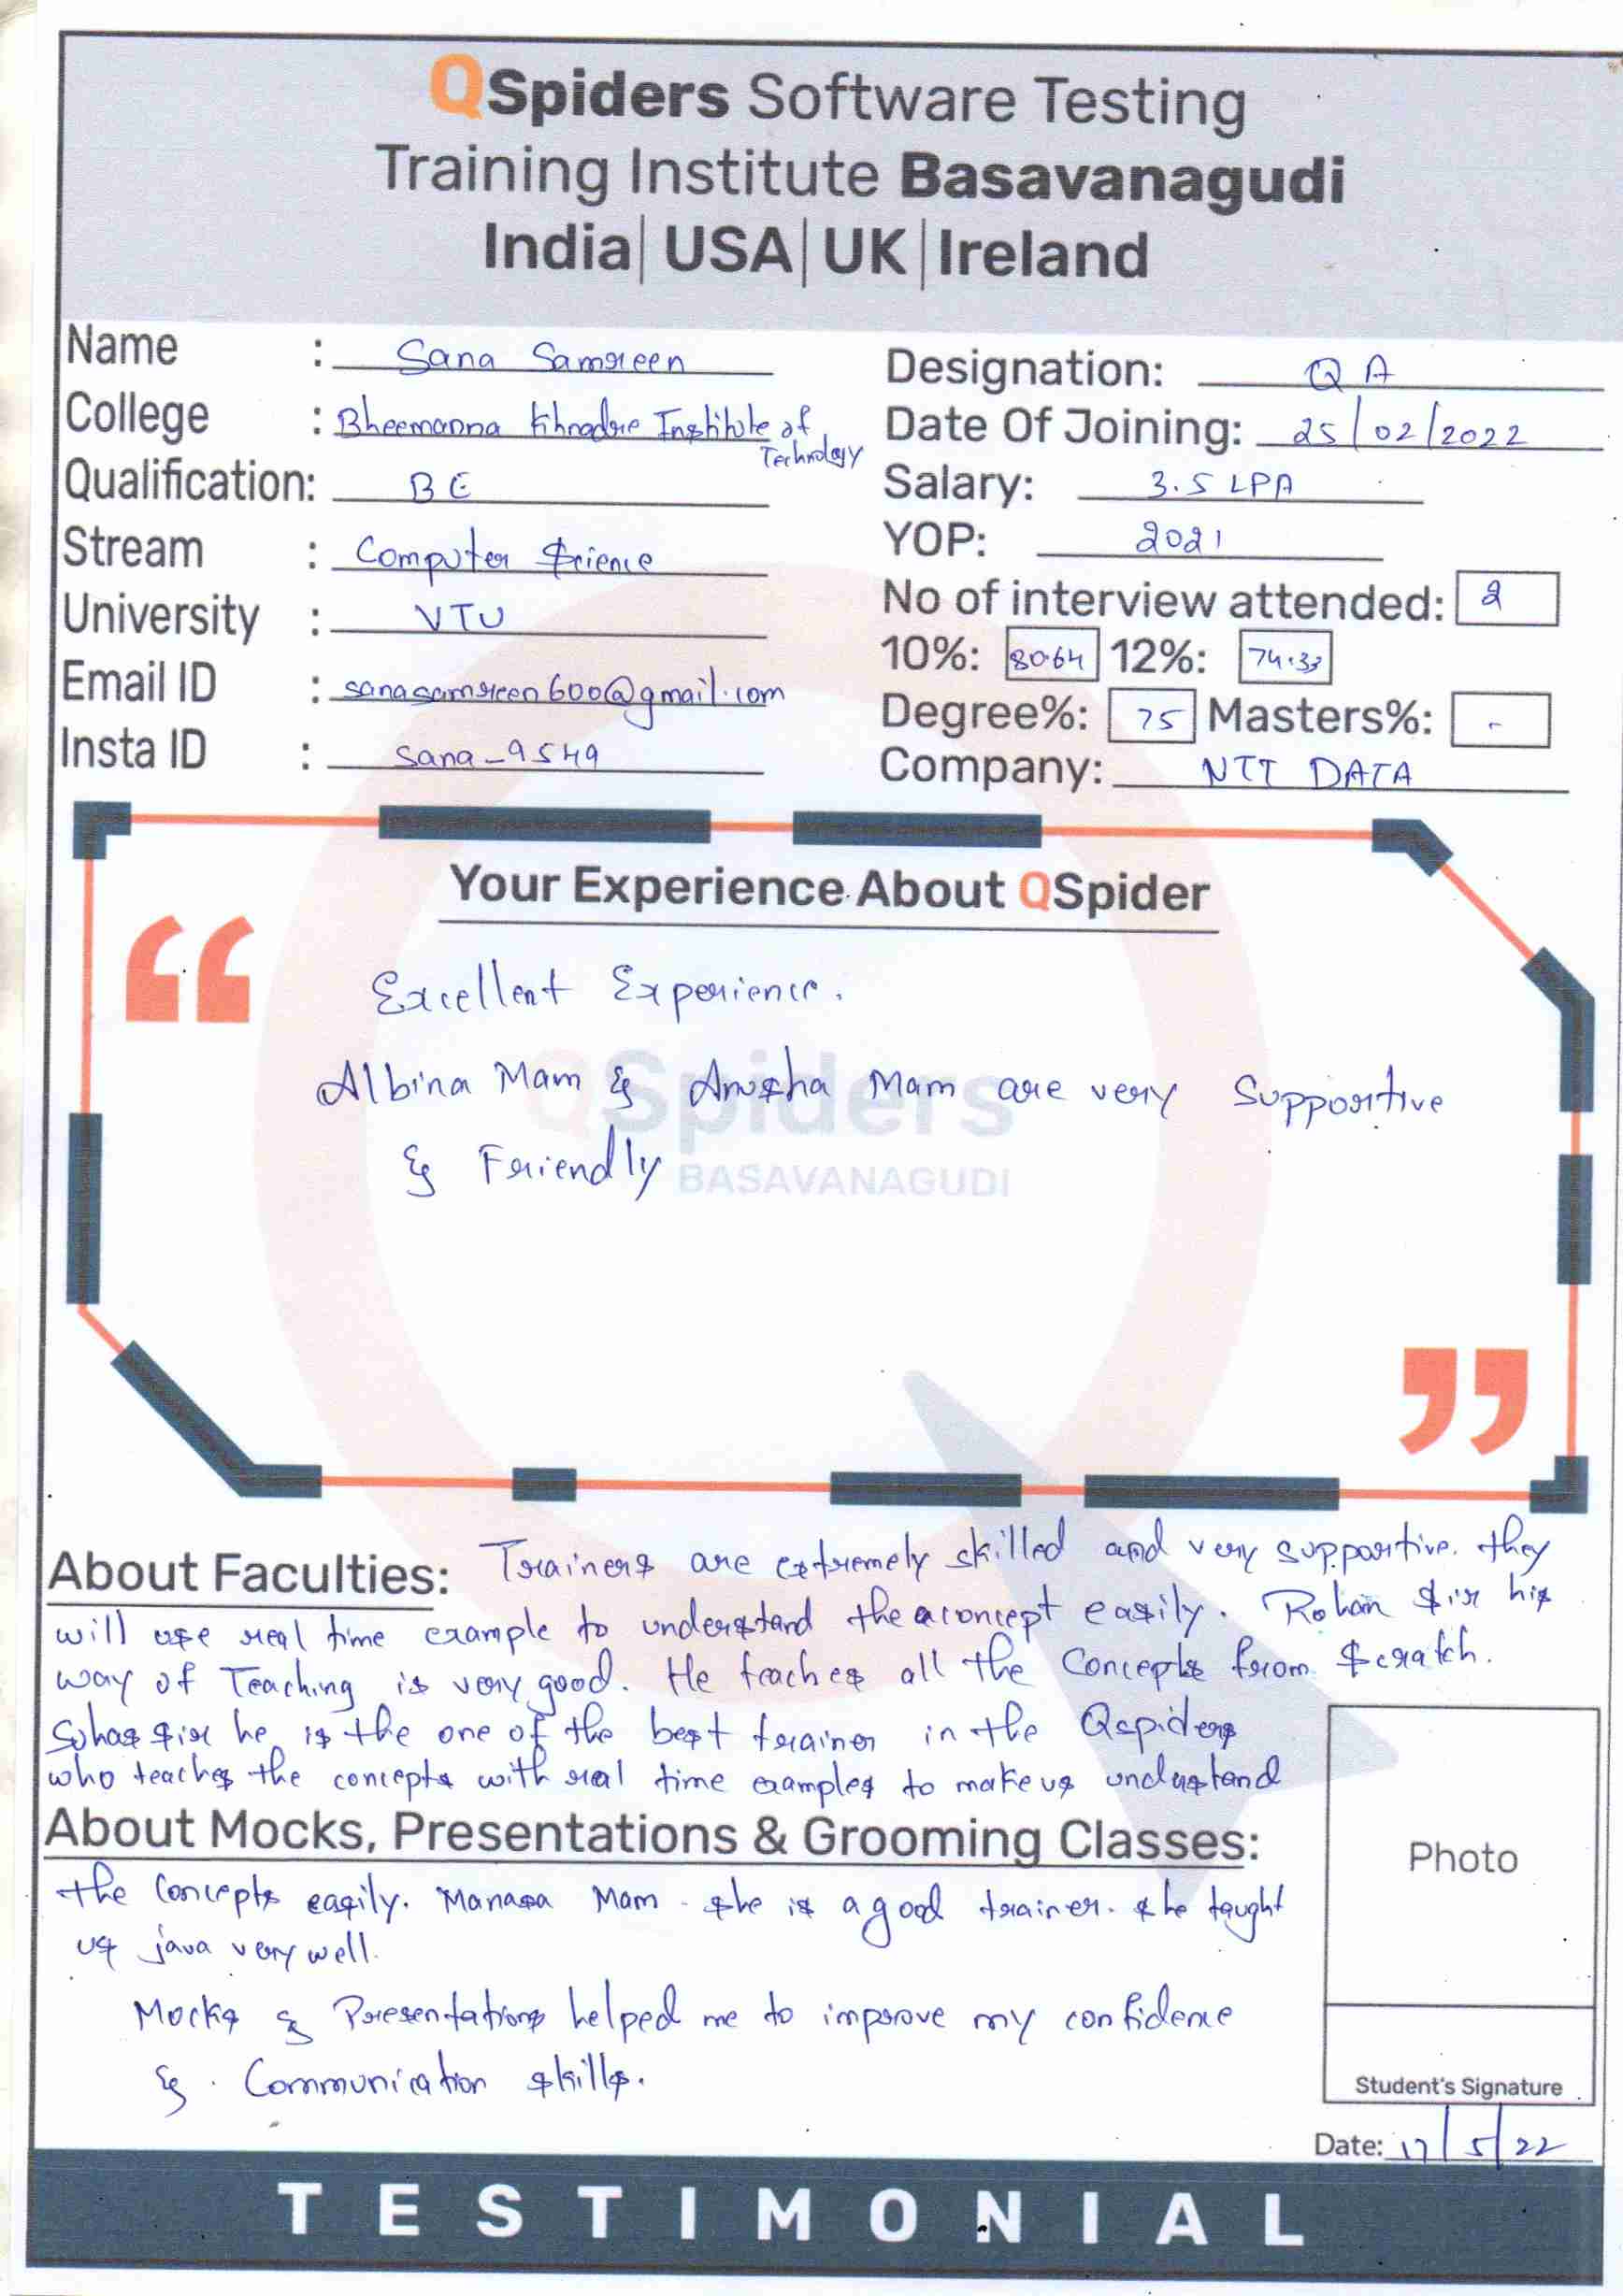 QSpiders Software Testing
Training Institute Basavanagudi
India| USA| UK |Ireland
Name : Sana Samreen
College : Bheemanna Khnadre Institute of
Technology
Qualification: BE
Stream : Computer Science
University : VTU
Email ID : sanasamreen600@gmail.com
Insta ID : sana_9549
Designation: QA
Date Of Joining: 25/02/2022
Salary: 3.5 LPA
YOP: 2021
No of interview attended: 2
10%: 80.64 12%: 74.33
Degree%: 75 Masters%: -
Company: NTT DATA
Your Experience About QSpider
“
Excellent Experience.
Albina Mam & Anusha Mam are very Supportive
& Friendly
QSpiders
BASAVANAGUDI
”
About Faculties: Trainers are extremely skilled and very supportive. they
will use real time example to understand the concept easily. Rohan Sir his
way of Teaching is very good. He teaches all the Concepts from Scratch.
Suhas Sir he is the one of the best trainer in the Qspiders
who teaches the concepts with real time examples to make us understand
About Mocks, Presentations & Grooming Classes:
the Concepts easily. Manasa Mam - she is a good trainer. she taught
us java very well.
Mocks & Presentations helped me to improve my confidence
& Communication skills.
Photo
Student's Signature
Date: 17/5/22
TESTIMONIAL